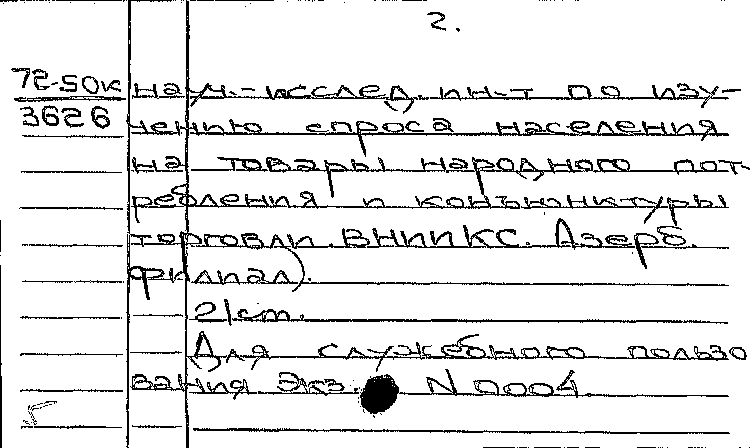 2.
72-50к науч.-исслед. ин-т по изу-
3626 чению спроса населения
на товары народного пот-
ребления и конъюнктуры
торговли. ВНИИКС. Азерб.
филиал).
2/ст.
Для служебного пользо
вания. Экз. N 0004.